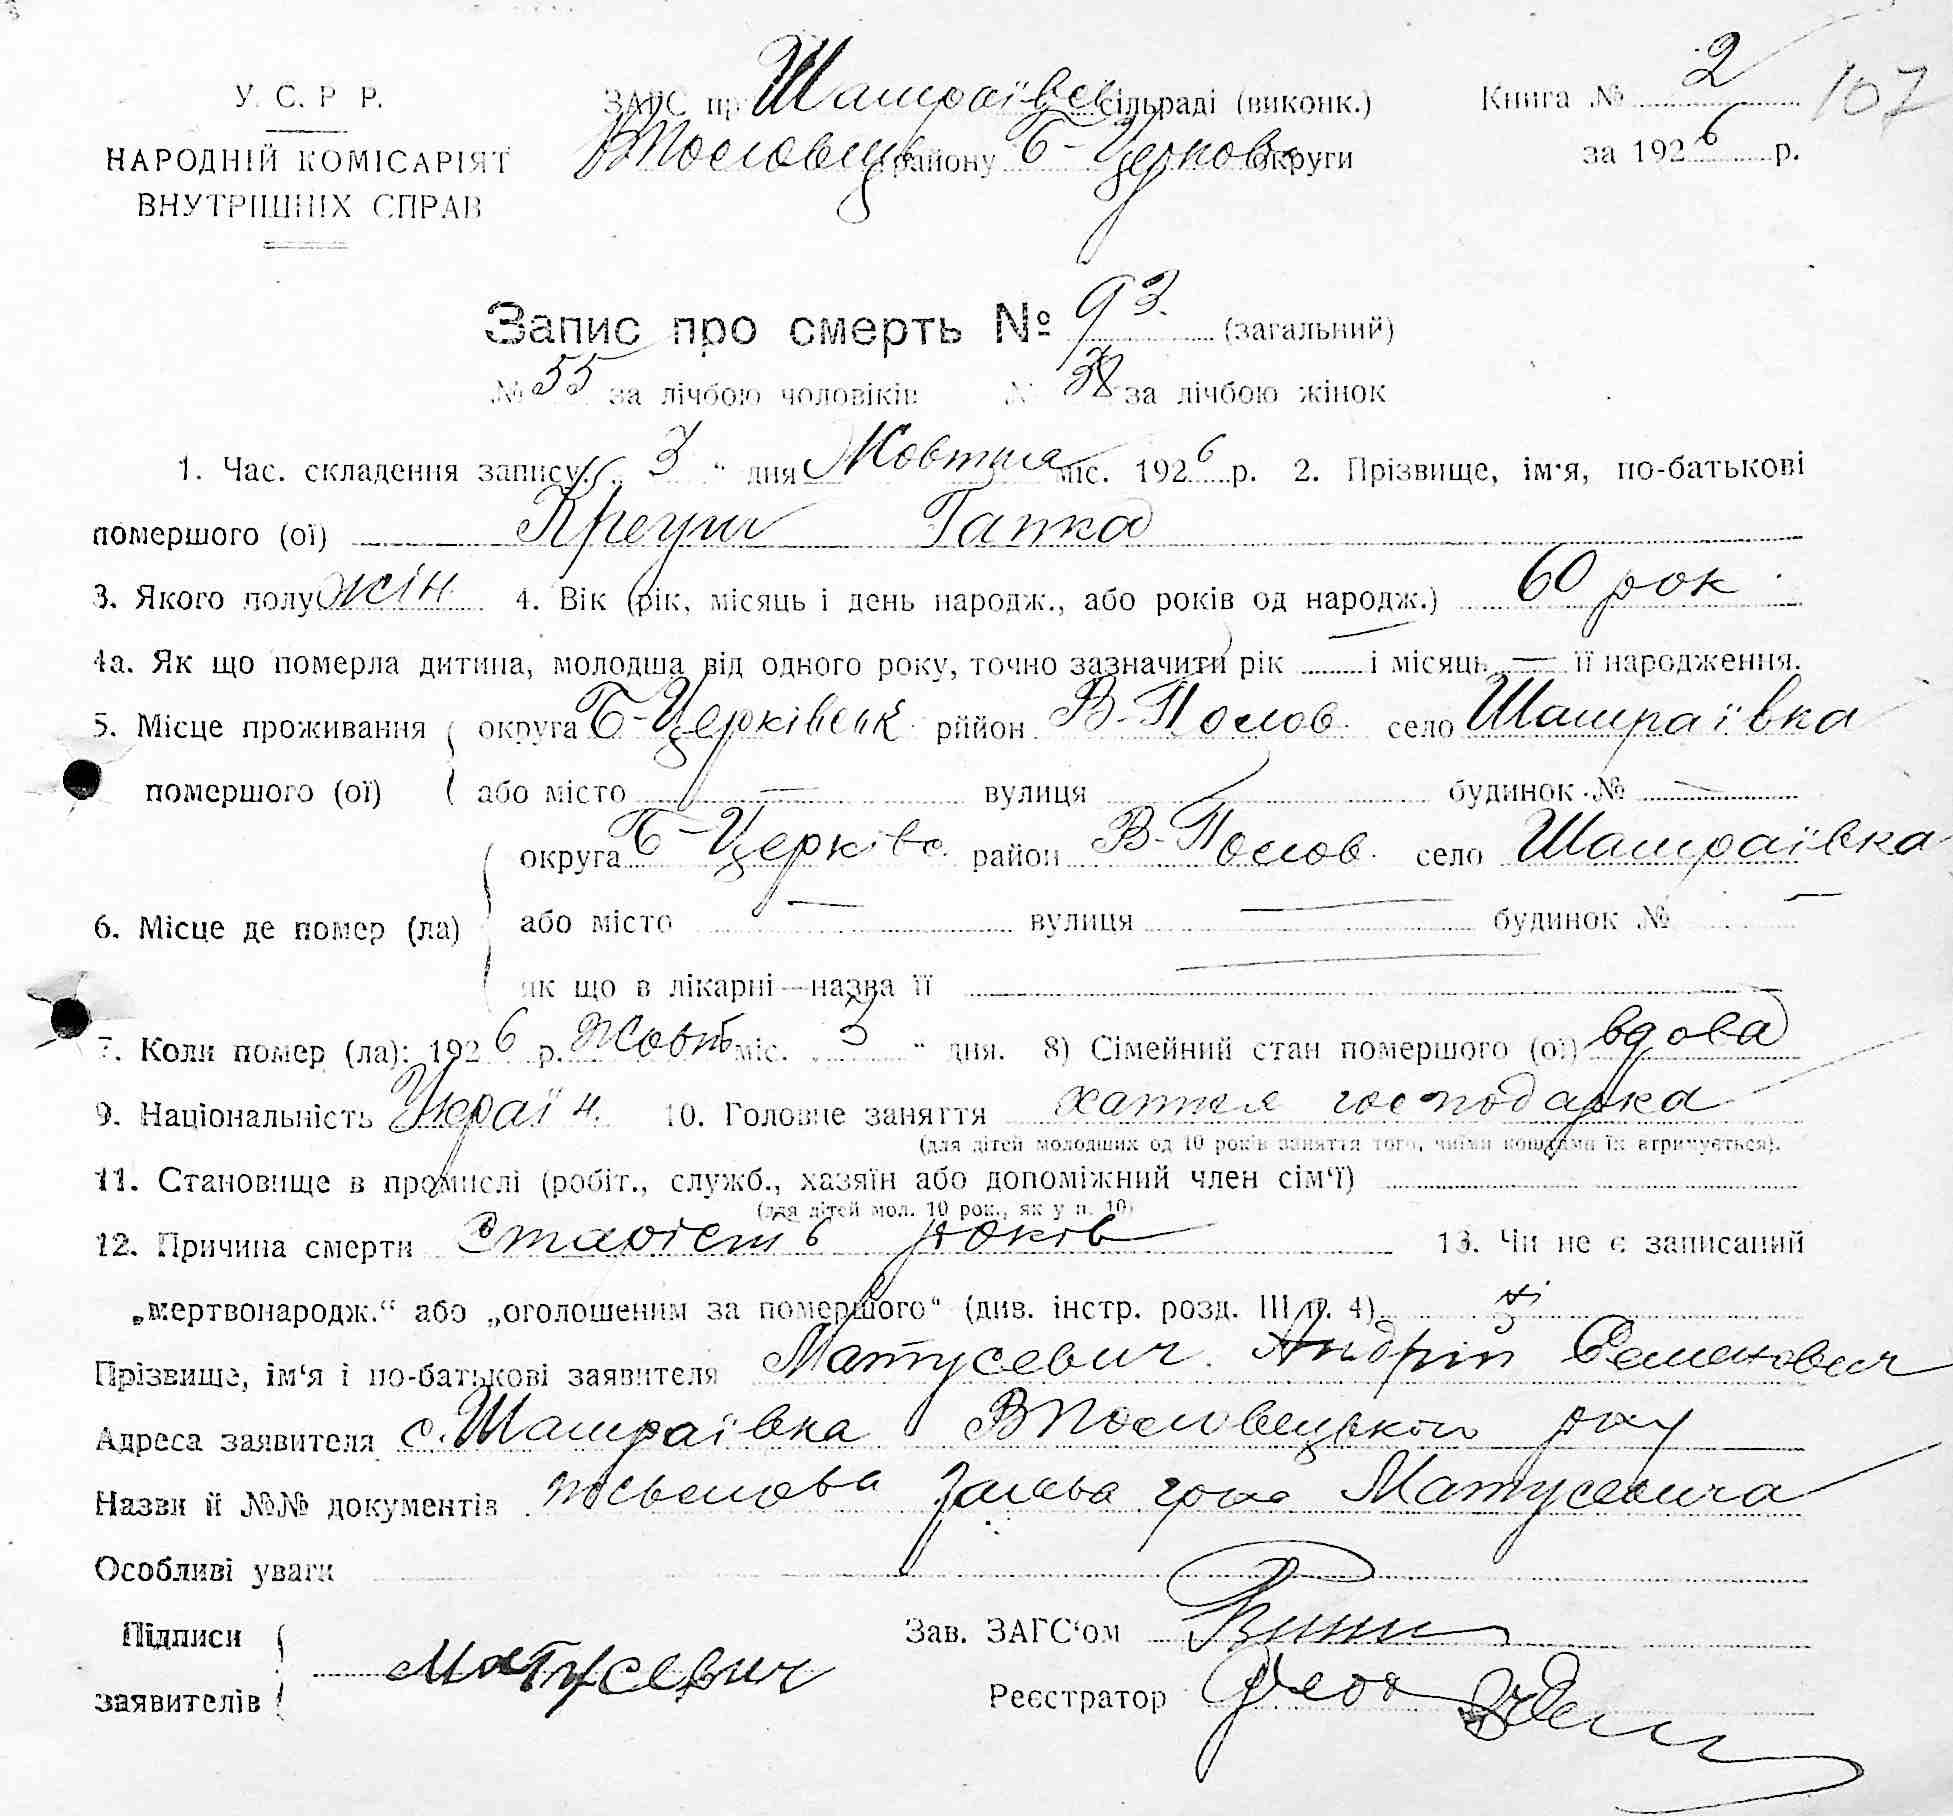 У. С. Р Р.
НАРОДНІЙ КОМІСАРІЯТ
ВНУТРІШНІХ СПРАВ
ЗАГС пр Шамраївс сільраді (виконк.)
району Б-Церковс округи
Книга № 2
107
за 1926 р.
Запис про смерть № 93. (загальний)
№ 55 за лічбою чоловіків № 38 за лічбою жінок
1. Час. складення запису „ 3 " дня Жовтня міс. 1926 р. 2. Прізвище, ім'я, по-батькові
помершого (ої) Гапка
3. Якого полу жін 4. Вік (рік, місяць і день народж., або років од народж.) 60 рок
4а. Як що померла дитина, молодша від одного року, точно зазначити рік — і місяць — її народження.
5. Місце проживання помершого (ої)
округа Б-Церківськ рійон В-Полов. село Шамраївка
або місто — вулиця — будинок № —
6. Місце де помер (ла)
округа Б-Церківс. район В-Полов. село Шамраївка
або місто — вулиця — будинок № —
як що в лікарні—назва її —
7. Коли помер (ла): 1926 р. Жовт міс. „ 3 " дня. 8) Сімейний стан помершого (ої) вдова
9. Національність Україн. 10. Головне заняття хатня господарка
(для дітей молодших од 10 років заняття того, чиїми коштами їх втримується).
11. Становище в промислі (робіт., служб., хазяїн або допоміжний член сім'ї)
(для дітей мол. 10 рок., як у п. 10)
12. Причина смерти Старість років 13. Чи не є записаний
„мертвонародж." або „оголошеним за помершого" (див. інстр. розд. III п. 4) ні
Прізвище, ім'я і по-батькові заявителя Матусевич Андрій Семенович
Адреса заявителя с. Шамраївка ВПоловецького рау
Назви й №№ документів заява гром Матусевича
Особливі уваги
Підписи заявителів Матусевич
Зав. ЗАГС'ом
Реєстратор